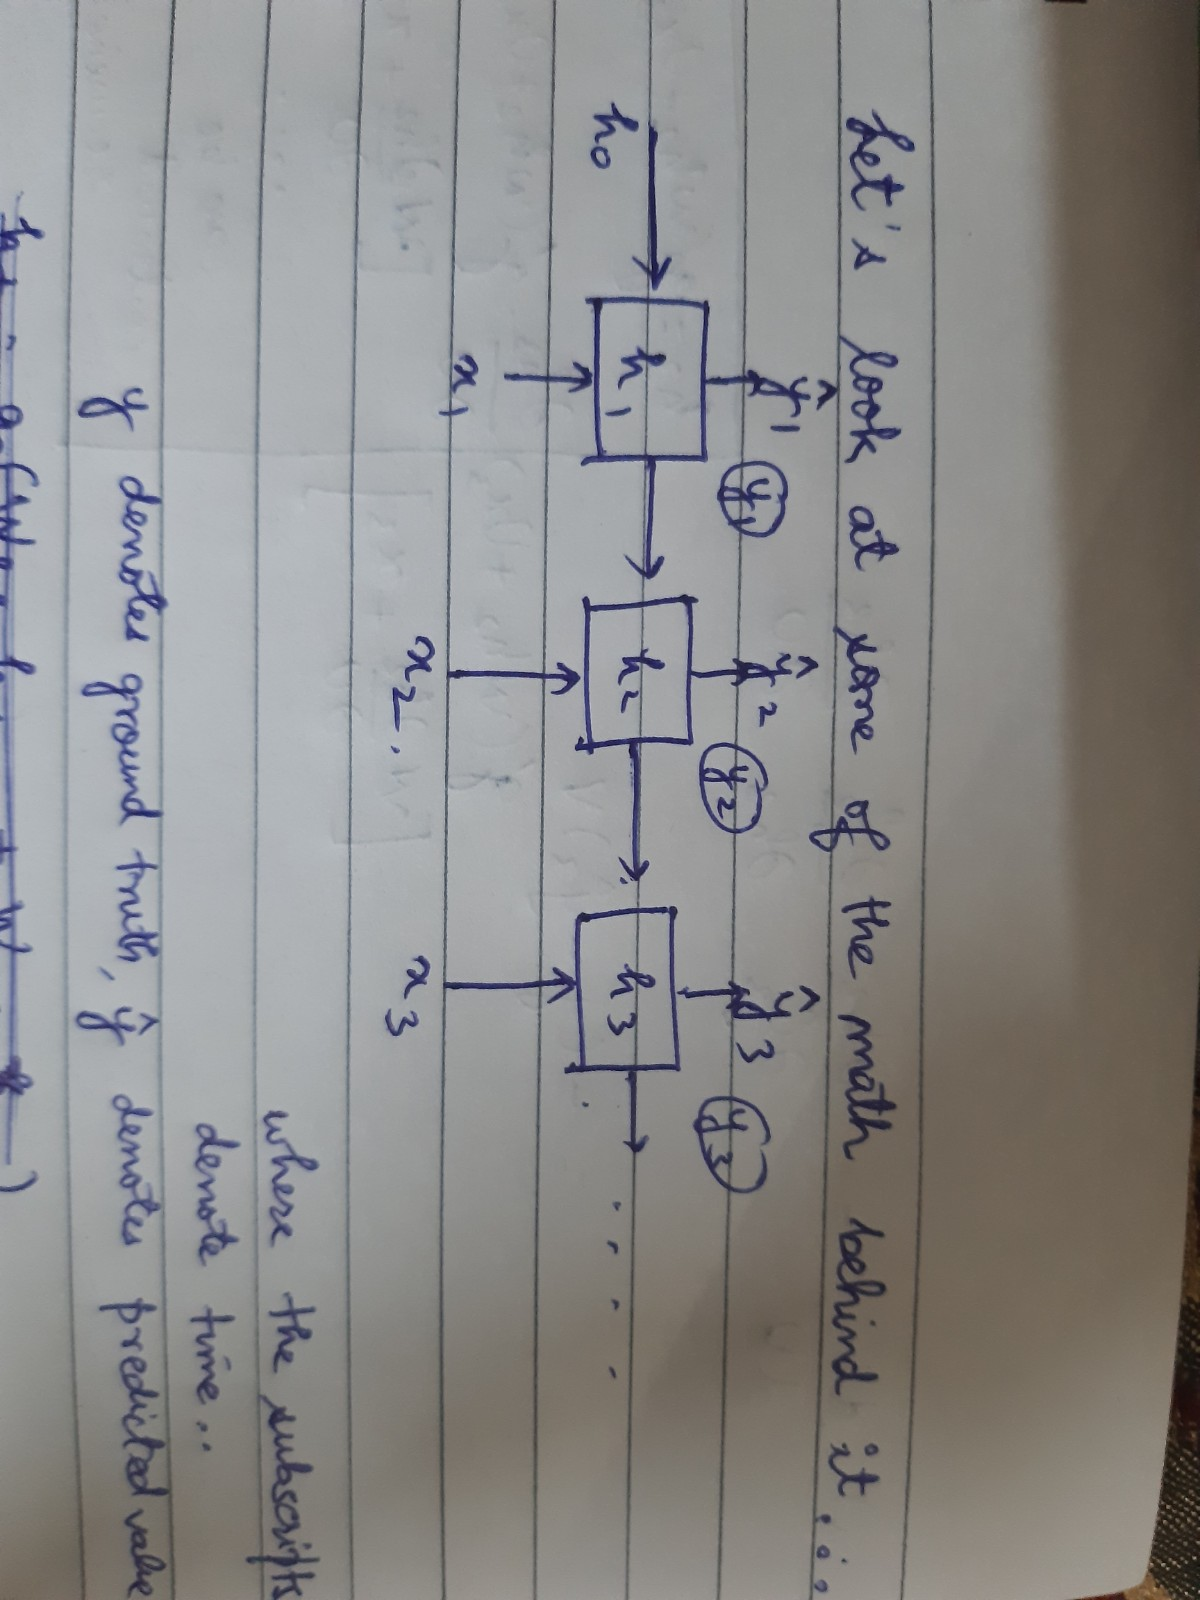 Let's look at some of the math behind it...
ŷ1 ŷ2 ŷ3
y1 y2 y3
h0 h1 h2 h3
x1 x2 x3
where the subscripts
denote time..
y denotes ground truth, ŷ denotes predicted value